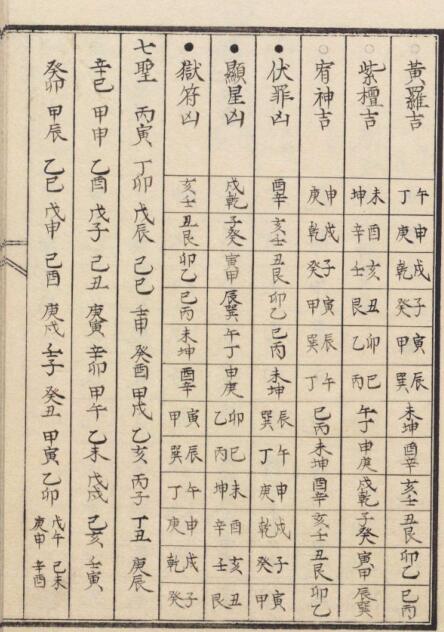 ○黃羅吉 午丁 申庚 戌乾 子癸 寅甲 辰巽 未坤 酉辛 亥壬 丑艮 卯乙 巳丙
○紫檀吉 未坤 酉辛 亥壬 丑艮 卯乙 巳丙 午丁 申庚 戌乾 子癸 寅甲 辰巽
○宥神吉 申庚 戌乾 子癸 寅甲 辰巽 午丁 巳丙 未坤 酉辛 亥壬 丑艮 卯乙
●伏罪凶 酉辛 亥壬 丑艮 卯乙 巳丙 未坤 辰巽 午丁 申庚 戌乾 子癸 寅甲
●顯星凶 戌乾 子癸 寅甲 辰巽 午丁 申庚 卯乙 巳丙 未坤 酉辛 亥壬 丑艮
●獄符凶 亥壬 丑艮 卯乙 巳丙 未坤 酉辛 寅甲 辰巽 午丁 申庚 戌乾 子癸
七聖 丙寅 丁卯 戊辰 己巳 壬申 癸酉 甲戌 乙亥 丙子 丁丑 庚辰
辛巳 甲申 乙酉 戊子 己丑 庚寅 辛卯 甲午 乙未 戊戌 己亥 壬寅
癸卯 甲辰 乙巳 戊申 己酉 庚戌 壬子 癸丑 甲寅 乙卯 戊午 己未 庚申 辛酉